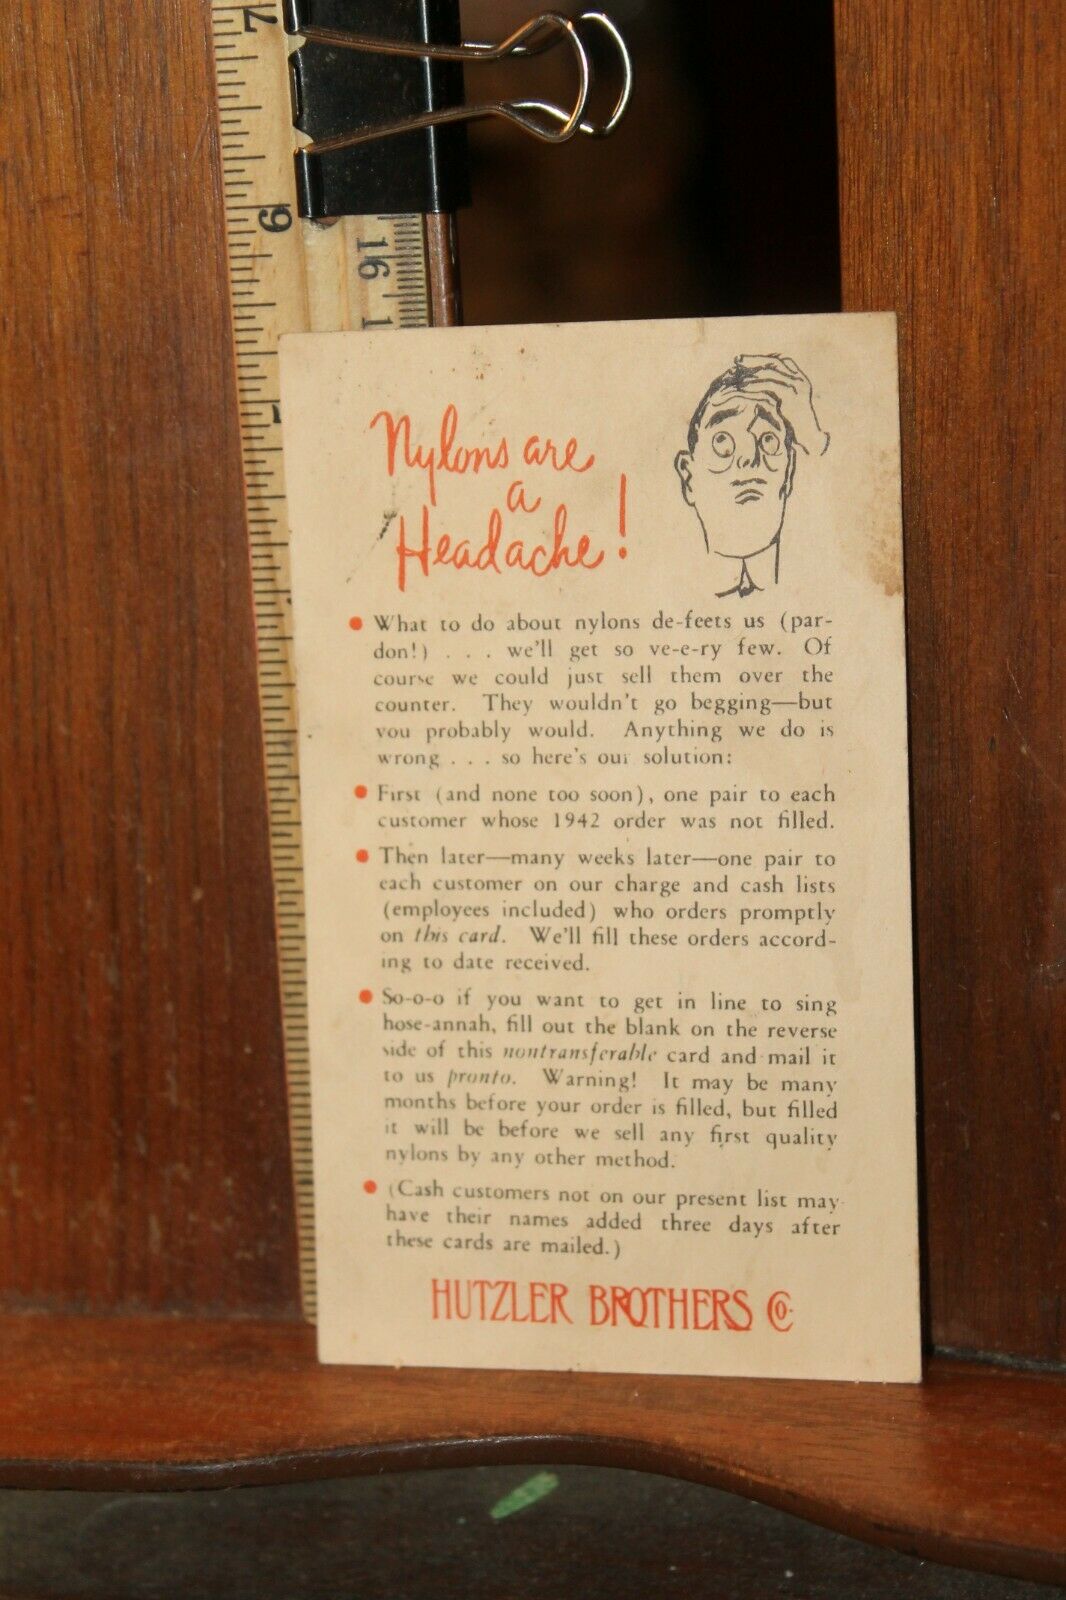 7
9
16
1
7
Nylons are
a
Headache!
• What to do about nylons de-feets us (par-
don!) . . . we'll get so ve-e-ry few. Of
course we could just sell them over the
counter. They wouldn't go begging—but
you probably would. Anything we do is
wrong . . . so here's our solution:
• First (and none too soon), one pair to each
customer whose 1942 order was not filled.
• Then later—many weeks later—one pair to
each customer on our charge and cash lists
(employees included) who orders promptly
on this card. We'll fill these orders accord-
ing to date received.
• So-o-o if you want to get in line to sing
hose-annah, fill out the blank on the reverse
side of this nontransferable card and mail it
to us pronto. Warning! It may be many
months before your order is filled, but filled
it will be before we sell any first quality
nylons by any other method.
• (Cash customers not on our present list may
have their names added three days after
these cards are mailed.)
HUTZLER BROTHERS CO.